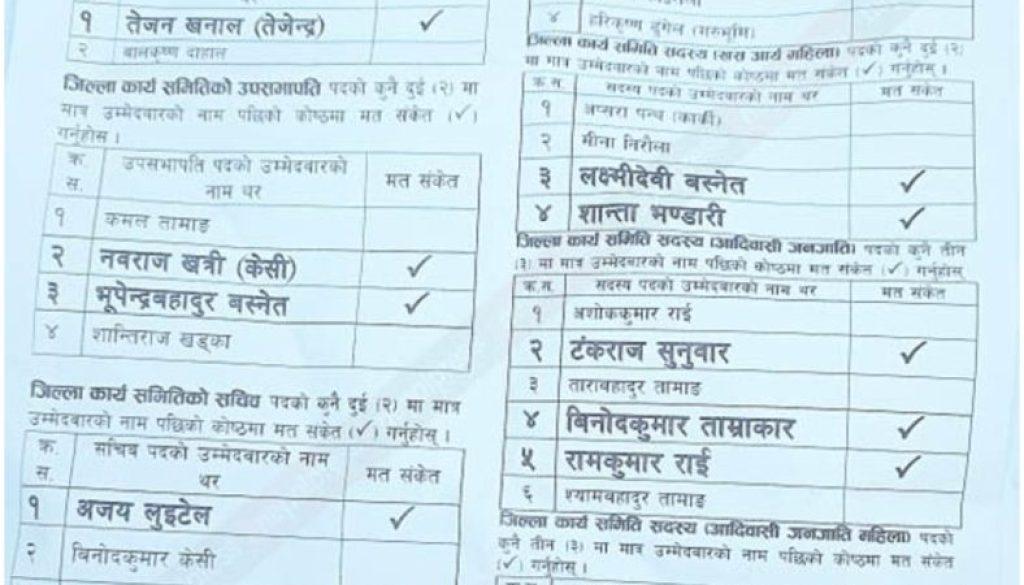 १ तेजन खनाल (तेजेन्द्र) ✓
२ बालकृष्ण दाहाल
जिल्ला कार्य समितिको उपसभापति पदको कुनै दुई (२) मा
मात्र उम्मेदवारको नाम पछिको कोष्ठमा मत संकेत (✓)
गर्नुहोस ।
क्र. स. उपसभापति पदको उम्मेदवारको नाम थर मत संकेत
१ कमल तामाङ
२ नवराज खत्री (केसी) ✓
३ भूपेन्द्रबहादुर बस्नेत ✓
४ शान्तिराज खड्का
जिल्ला कार्य समितिको सचिव पदको कुनै दुई (२) मा मात्र
उम्मेदवारको नाम पछिको कोष्ठमा मत संकेत (✓) गर्नुहोस् ।
क्र. स. सचिब पदको उम्मेदवारको नाम थर मत संकेत
१ अजय लुइटेल ✓
२ बिनोदकुमार केसी
४ हरिकृष्ण ढुंगेल (मरुभूमि)
जिल्ला कार्य समिति सदस्य (खस आर्य महिला) पदको कुनै दुई (२)
मा मात्र उम्मेदवारको नाम पछिको कोष्ठमा मत संकेत (✓) गर्नुहोस् ।
क्र.स. सदस्य पदको उम्मेदवारको नाम थर मत संकेत
१ अप्सरा पन्थ (कार्की)
२ मीना निरौला
३ लक्ष्मीदेवी बस्नेत ✓
४ शान्ता भण्डारी ✓
जिल्ला कार्य समिति सदस्य (आदिवासी जनजाति) पदको कुनै तीन
(३) मा मात्र उम्मेदवारको नाम पछिको कोष्ठमा मत संकेत (✓) गर्नुहोस्
क्र.स. सदस्य पदको उम्मेदवारको नाम थर मत संकेत
१ अशोककुमार राई
२ टंकराज सुनुवार ✓
३ ताराबहादुर तामाङ
४ बिनोदकुमार ताम्राकार ✓
५ रामकुमार राई ✓
६ श्यामबहादुर तामाङ
जिल्ला कार्य समिति सदस्य (आदिवासी जनजाति महिला) पदको
कुनै तीन (३) मा मात्र उम्मेदवारको नाम पछिको कोष्ठमा मत संकेत
(✓) गर्नुहोस् ।